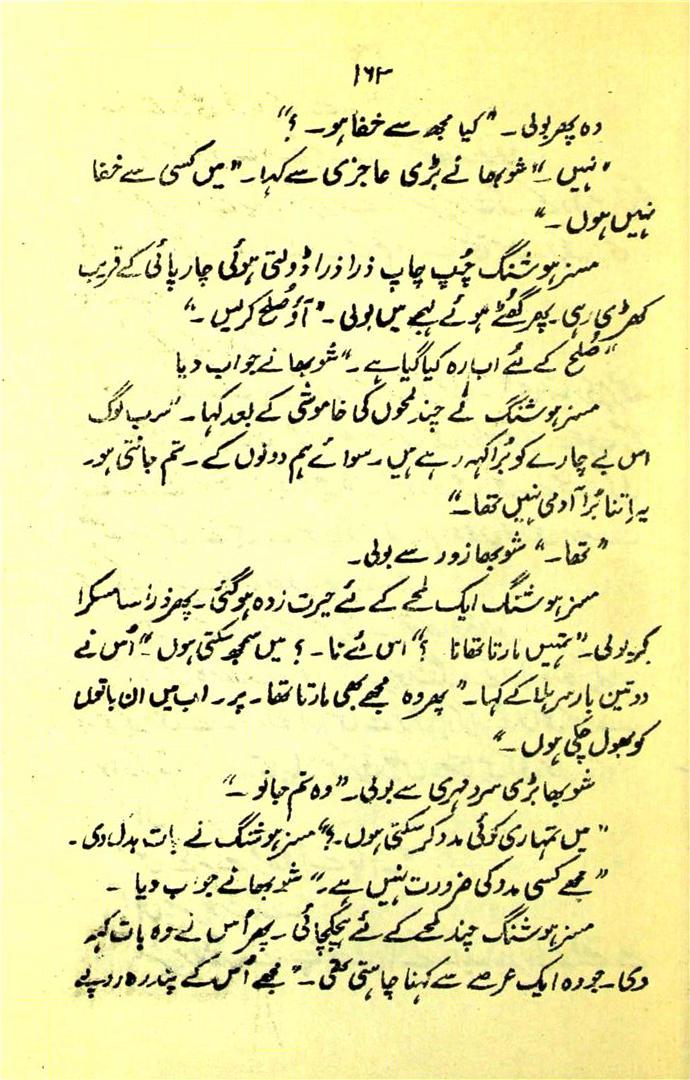 ۱۶۳
وہ پھر بولی ۔ "کیا مجھ سے خفا ہو ۔ ؟"
"نہیں ۔" شوبھا نے بڑی عاجزی سے کہا ۔ "میں کسی سے خفا
نہیں ہوں ۔"
مسز ہوشنگ چُپ چاپ ذرا ذرا ڈولتی ہوئی چارپائی کے قریب
کھڑی رہی ۔ پھر گھُٹے ہوئے لہجے میں بولی ۔ "آؤ صُلح کر لیں ۔"
"صُلح کے لئے اب رہ کیا گیا ہے ۔" شوبھا نے جواب دیا
مسز ہوشنگ نے چند لمحوں کی خاموشی کے بعد کہا ۔ "سب لوگ
اس بے چارے کو بُرا کہہ رہے ہیں ۔ سوائے ہم دونوں کے ۔ تم جانتی ہو ۔
یہ اِتنا بُرا آدمی نہیں تھا ۔"
"تھا ۔" شوبھا زور سے بولی ۔
مسز ہوشنگ ایک لمحے کے لئے حیرت زدہ ہو گئی ۔ پھر ذرا سا مسکرا
کر بولی ۔ "تمہیں مارتا تھا نا ؟" اس لئے نا ۔ ؟ میں سمجھ سکتی ہوں ۔" اُس نے
دو تین بار سر ہلا کے کہا ۔ "پھر وہ مجھے بھی مارتا تھا ۔ پر ۔ اب میں ان باتوں
کو بھول چکی ہوں ۔"
شوبھا بڑی سرد مہری سے بولی ۔ "وہ تم جانو ۔"
"میں تمہاری کوئی مدد کر سکتی ہوں ۔ ؟" مسز ہوشنگ نے بات بدل دی ۔
"مجھے کسی مدد کی ضرورت نہیں ہے ۔" شوبھا نے جواب دیا ۔
مسز ہوشنگ چند لمحے کے لئے ہچکچائی ۔ پھر اُس نے وہ بات کہہ
دی ۔ جو وہ ایک عرصے سے کہنا چاہتی تھی ۔ "مجھے اُس کے پندرہ روپے